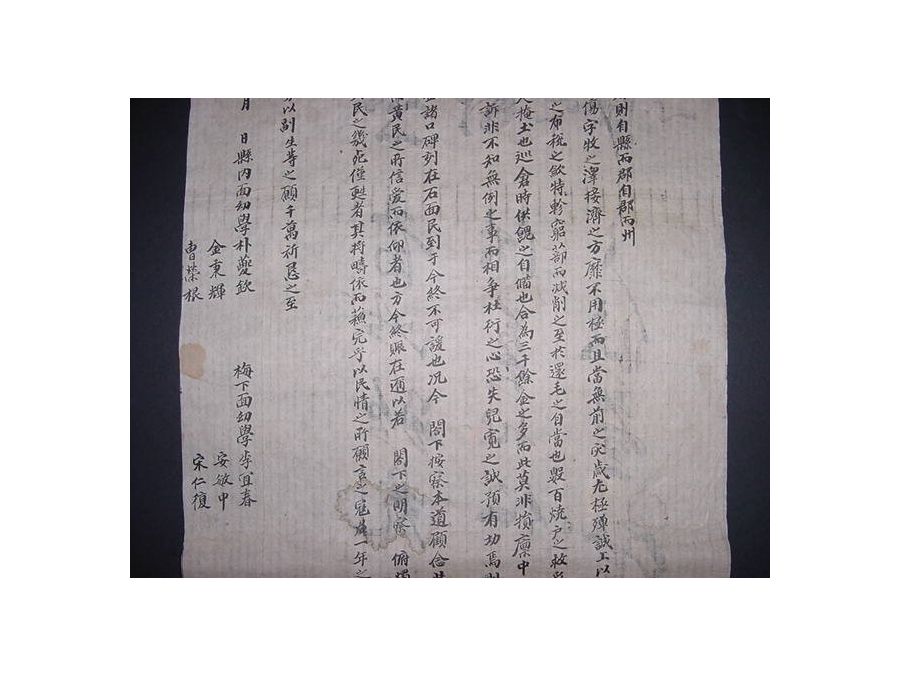 則自縣而郡自郡而州
傷字牧之澤接濟之方靡不用極而且當無前之灾歲尤極殫誠上以
之布稅之斂特軫窮蔀而減削之至於還毛之自當也數百燒戶之救
掩土也巡倉時供饋之自備也合為三千餘金之多而此莫非損廩中
訴非不知無例之事而相爭杜衍之心恐失兒寬之誠預有功焉則
諸口碑刻在石面民到于今終不可諼也况今 閤下按察本道顧念
黃民之所信愛而依仰者也方今終賑在邇以若 閤下之明察 俯燭
民之幾死僅甦者其將疇依而蘇完乎以民情之所願言之寇一年之
以副生等之願千萬祈恳之至
月 日縣內面幼學朴夔欽
金秉輝
曹榮根
梅下面幼學李宜春
安敏中
宋仁復